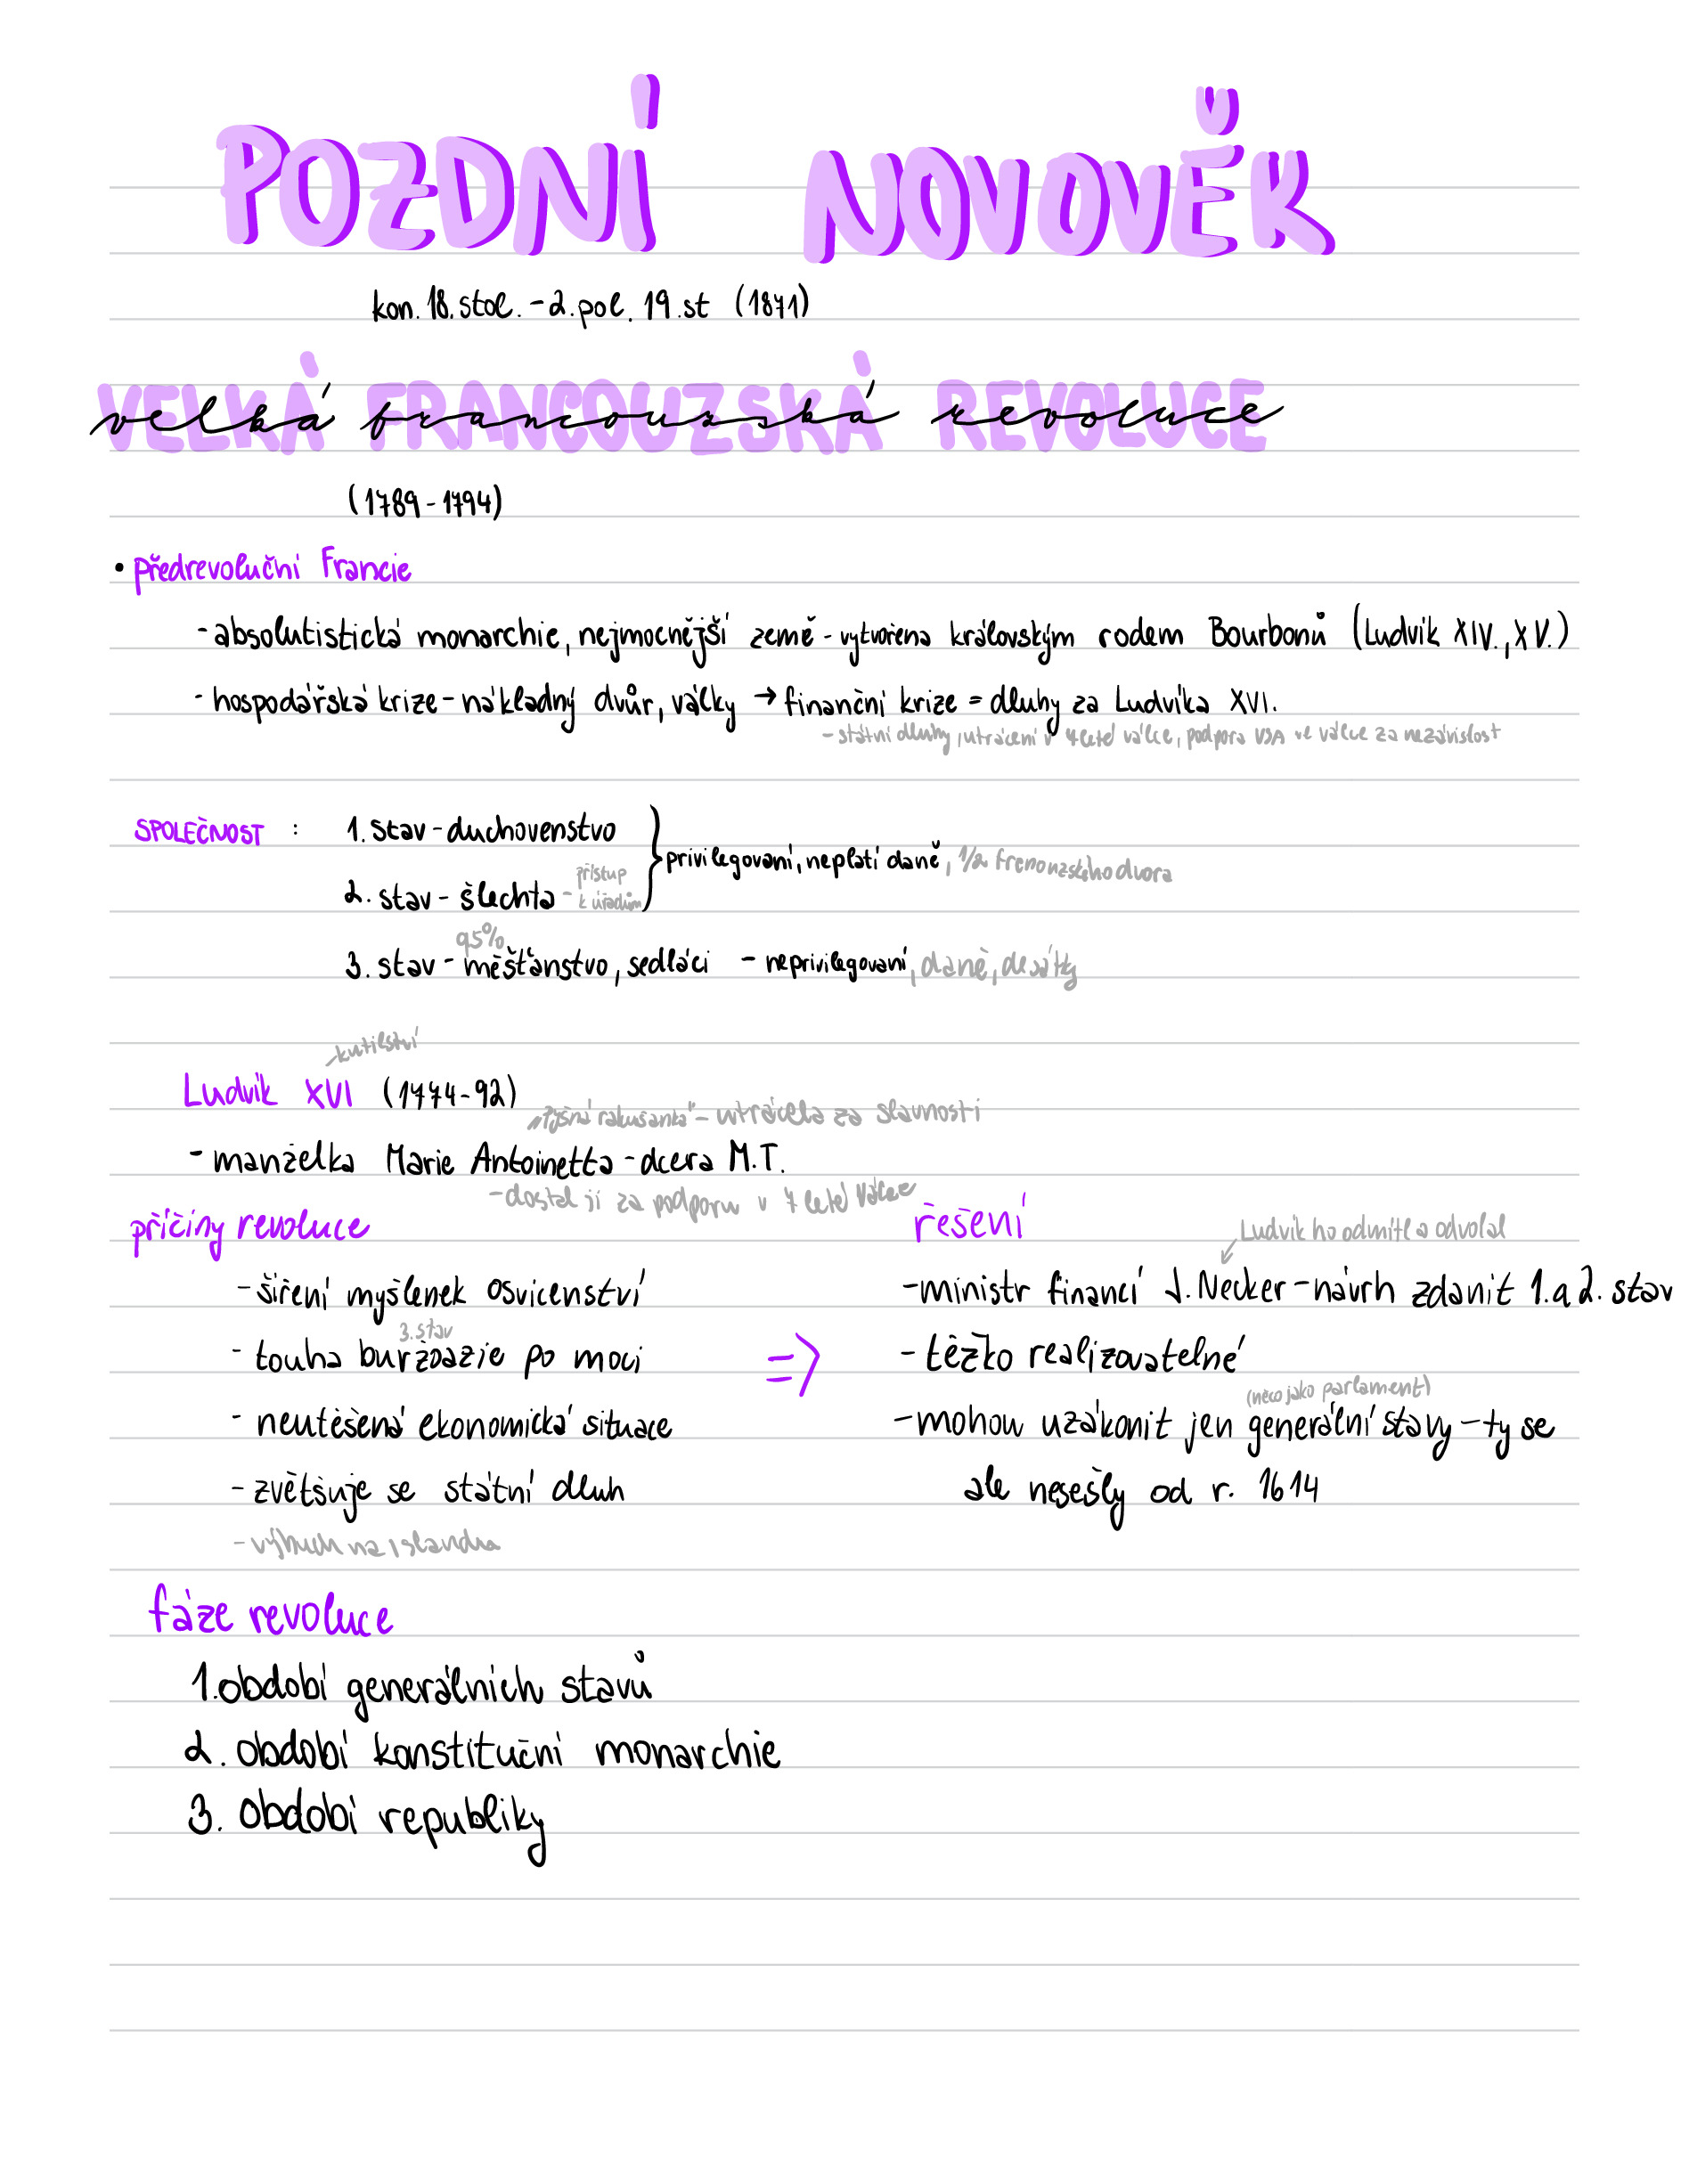 POZDNÍ NOVOVĚK
kon. 18. stol. - 2. pol. 19. st (1871)
VELKÁ FRANCOUZSKÁ REVOLUCE
velká francouzská revoluce
(1789 - 1794)
• předrevoluční Francie
- absolutistická monarchie, nejmocnější země - vytvořena královským rodem Bourbonů (Ludvík XIV., XV.)
- hospodářská krize - nákladný dvůr, války → finanční krize = dluhy za Ludvíka XVI.
- státní dluhy, utrácení v 7leté válce, podpora USA ve válce za nezávislost
SPOLEČNOST : 1. stav - duchovenstvo
privilegovaní, neplatí daně, 1/2 dvora
2. stav - šlechta - přístup
k úřadům
95%
3. stav - měšťanstvo, sedláci - neprivilegovaní, daně, desátky
- kutilství
Ludvík XVI (1774-92)
„Pyšná rakušanka" - utrácela za slavnosti
- manželka Marie Antoinetta - dcera M.T.
- dostal ji za podporu v 7 leté válce
příčiny revoluce
- šíření myšlenek osvícenství
3. stav
- touha buržoazie po moci
- neutěšená ekonomická situace
- zvětšuje se státní dluh
- výbuch na Islandu
=>
řešení
Ludvík ho odmítl a odvolal
- ministr financí J. Necker - návrh zdanit 1. a 2. stav
- těžko realizovatelné
(něco jako parlament)
- mohou uzákonit jen generální stavy - ty se
ale nesešly od r. 1614
fáze revoluce
1. období generálních stavů
2. období konstituční monarchie
3. období republiky